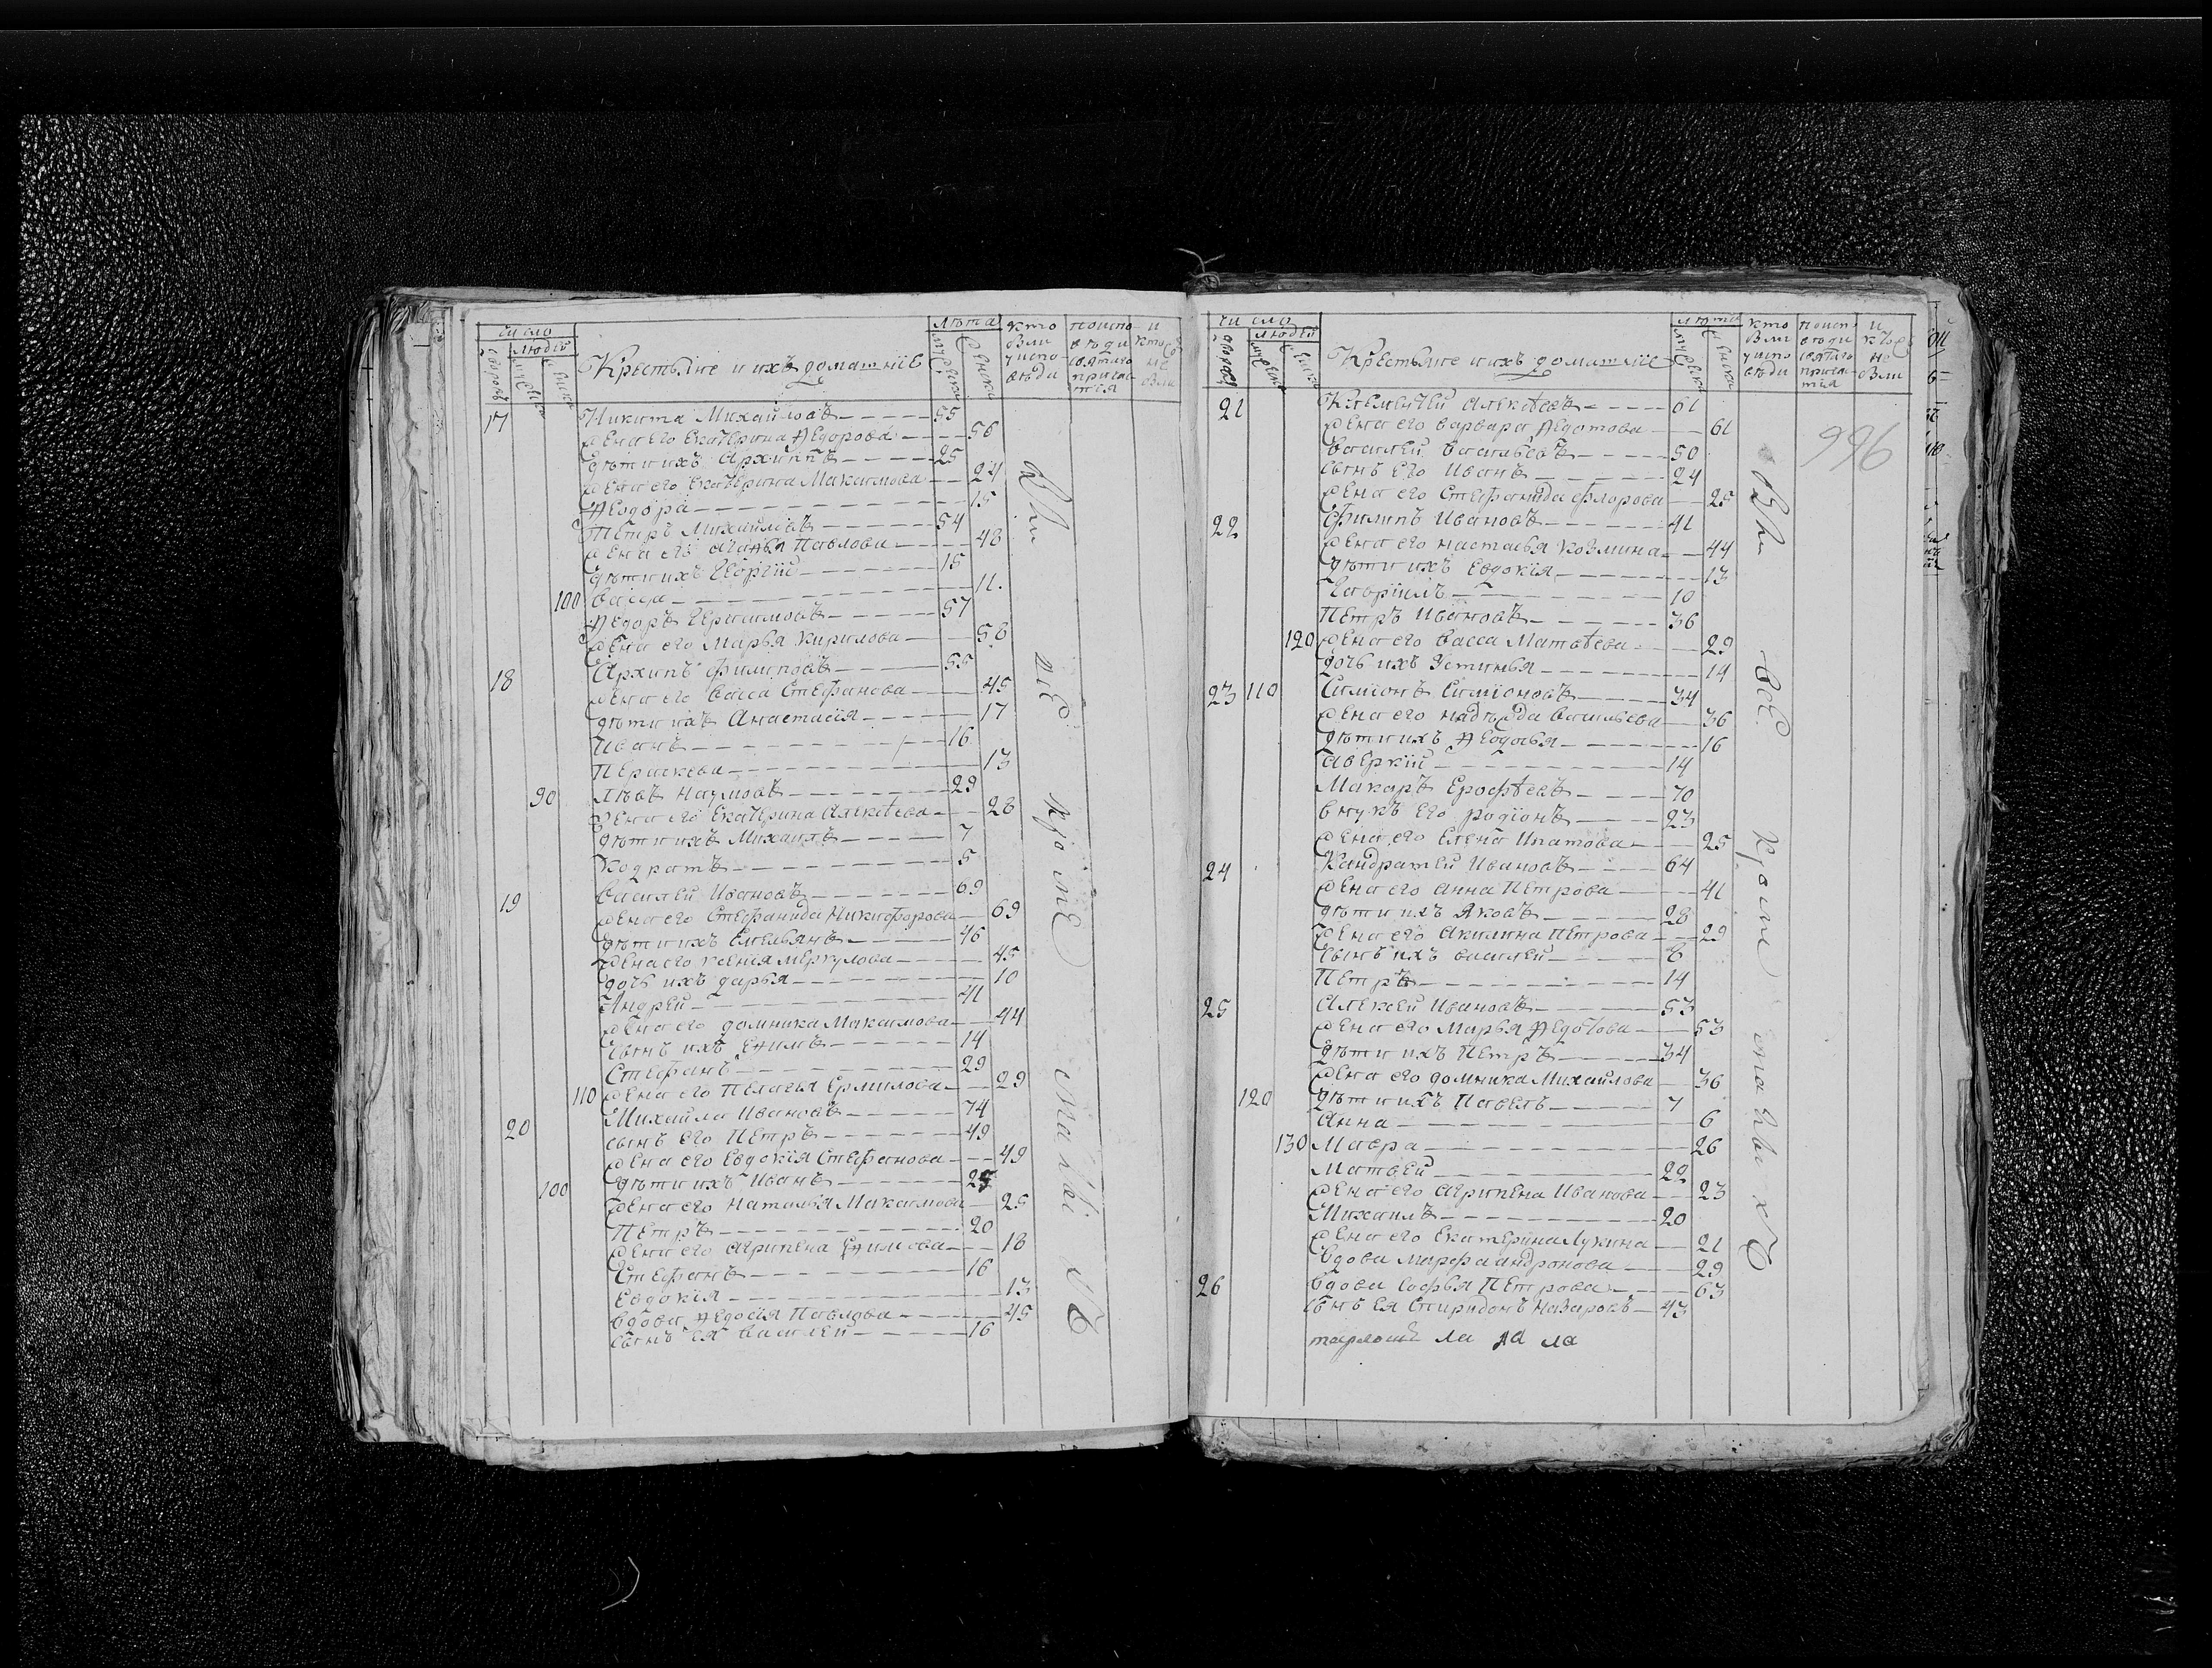 число
людей
Крестьяне и ихъ домашнїе
лѣта
кто были у исповѣди
и кто не были
17 Никита Михайловъ 55
жена его Екатерина Ѳедорова 56
дѣти ихъ Архиппъ 25
жена его Екатерина Максимова 24
Ѳеодора 15
Петръ Михайловъ 54
жена его Агаѳья Павлова 48
дѣти ихъ Георгїй 15
100 Васса 11
Ѳедоръ Герасимовъ 57
жена его Марья Кирилова 58
18 Архипъ Филиповъ 55
жена его Васса Стефанова 45
дѣти ихъ Анастасїя 17
Иванъ 16
Параскева 13
90 Левъ Наумовъ 29
жена его Екатерина Алексѣева 28
дѣти ихъ Михаилъ 7
Кодратъ 5
19 Василей Ивановъ 69
жена его Стефанида Никифорова 69
дѣти ихъ Емельянъ 46
жена его Ксенїя Меркулова 45
дочь ихъ Дарья 10
Андрей 41
жена его Домника Максимова 44
сынъ ихъ Еѳимъ 14
Стефанъ 29
110 жена его Пелагея Ермилова 29
20 Михайла Ивановъ 74
сынъ его Петръ 49
жена его Евдокїя Стефанова 49
100 дѣти ихъ Иванъ 25
жена его Наталья Максимова 25
Петръ 20
жена его Агрипена Еѳимова 18
Стефанъ 16
Евдокїя 13
вдова Ѳедосїя Павлова 45
сынъ ея Василей 16
Были все кроме малых
число
людей
Крестьяне и ихъ домашнїе
лѣта
кто были у исповѣди
и кто не были
996
21 Клементей Алексѣевъ 61
жена его Варвара Ѳедотова 61
Василей Васильевъ 50
сынъ его Иванъ 24
жена его Стефанида Флорова 25
22 Филипъ Ивановъ 41
жена его Настасья Козмина 44
дѣти ихъ Евдокїя 13
Гаврїилъ 10
Петръ Ивановъ 36
120 жена его Васса Матвѣева 29
дочь ихъ Устинья 14
23 110 Симїонъ Симїоновъ 34
жена его Надѣжда Васильева 36
дѣти ихъ Ѳеодосья 16
Аверкїй 14
Макаръ Ерофѣевъ 70
внукъ его Родїонъ 23
жена его Елена Ипатова 25
24 Кандратей Ивановъ 64
жена его Анна Петрова 41
дѣти ихъ Яковъ 28
жена его Акилина Петрова 29
сынъ ихъ Василей 8
Петръ 14
25 Алексей Ивановъ 53
жена его Марья Ѳедотова 53
дѣти ихъ Петръ 34
жена его Домника Михайлова 36
120 дѣти ихъ Павелъ 7
Анна 6
130 Мавра 26
Матвей 22
жена его Агрипена Иванова 23
Михаилъ 20
жена его Екатерина Лукина 21
вдова Марфа Андронова 29
26 вдова Софья Петрова 63
сынъ ея Спиридонъ Назаровъ 43
Были все кроме малых